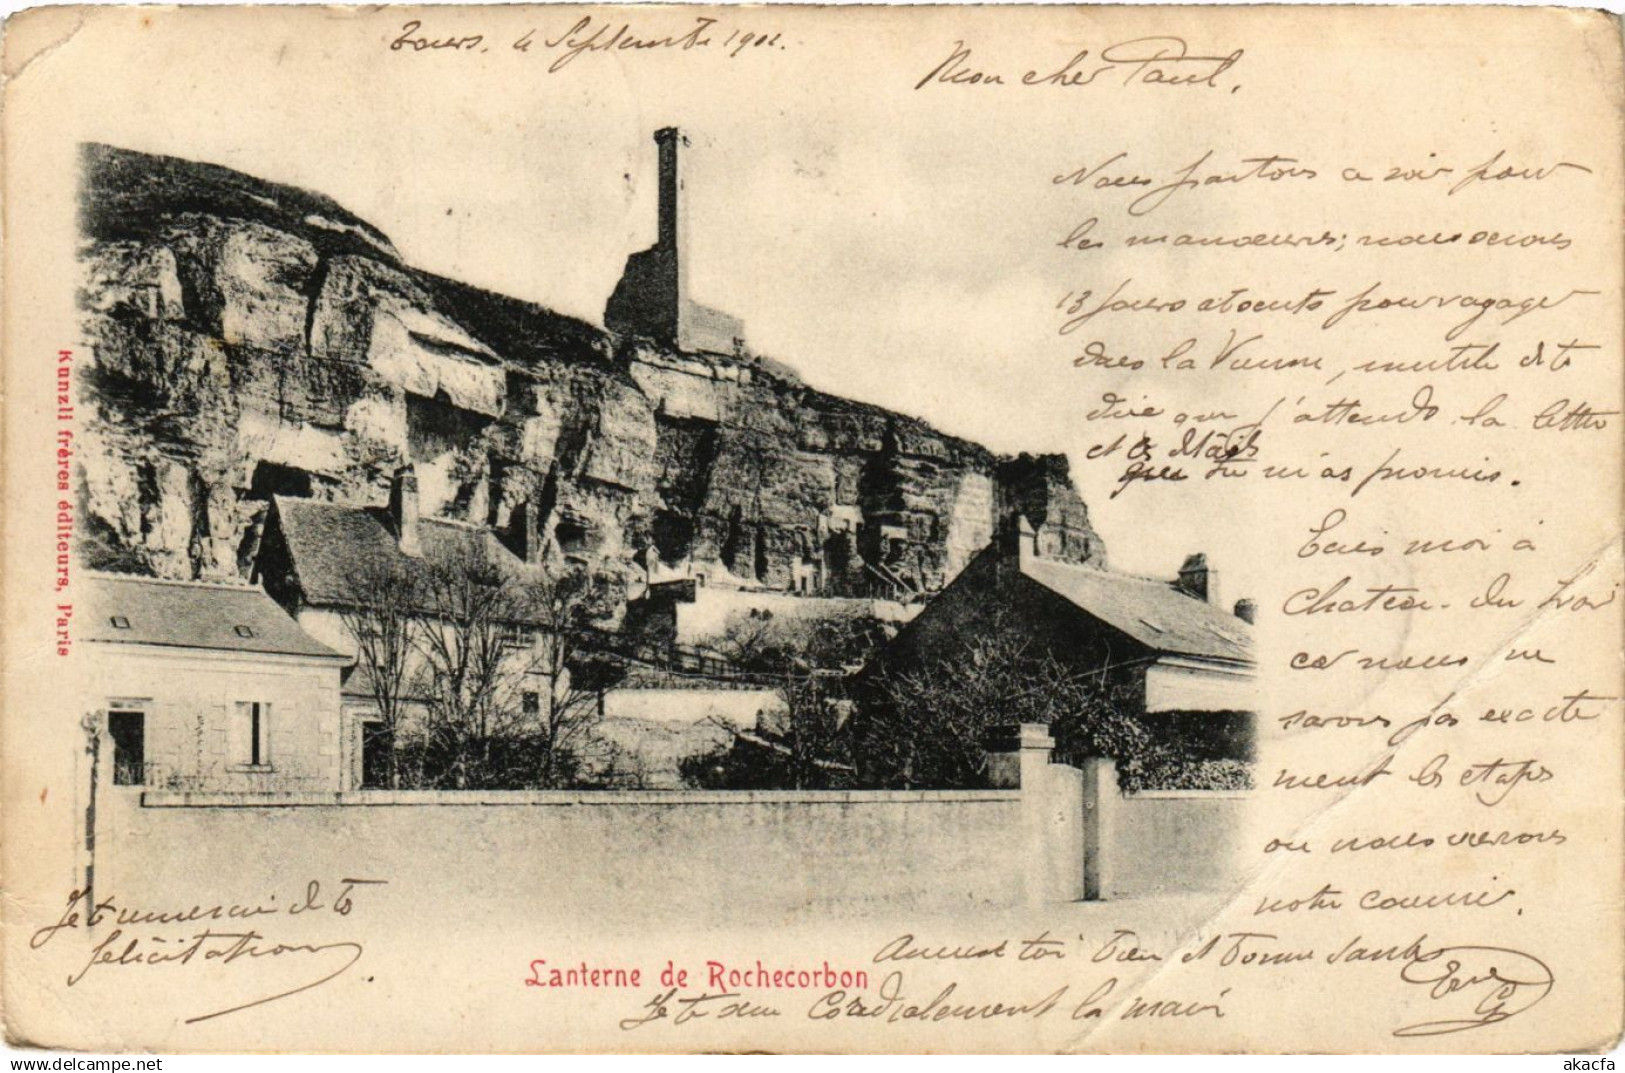 Tours. 4 Septembre 1901.
Mon cher Paul,
Nous partons ce soir pour
les manoeuvres; nous serons
13 jours absents pour voyager
dans la Vienne, inutile de te
dire que j'attends la lettre
et les détails
que tu m'as promis.
Ecris moi à
Chateau-du Loir
car nous ne
savons pas exacte
ment les étapes
ou nous verrons
notre courrier.
Amuse toi bien et bonne santé
Je te serre cordialement la main
Je te remercie de tes
félicitations.
Lanterne de Rochecorbon
Kunzli frères éditeurs, Paris
akacfa